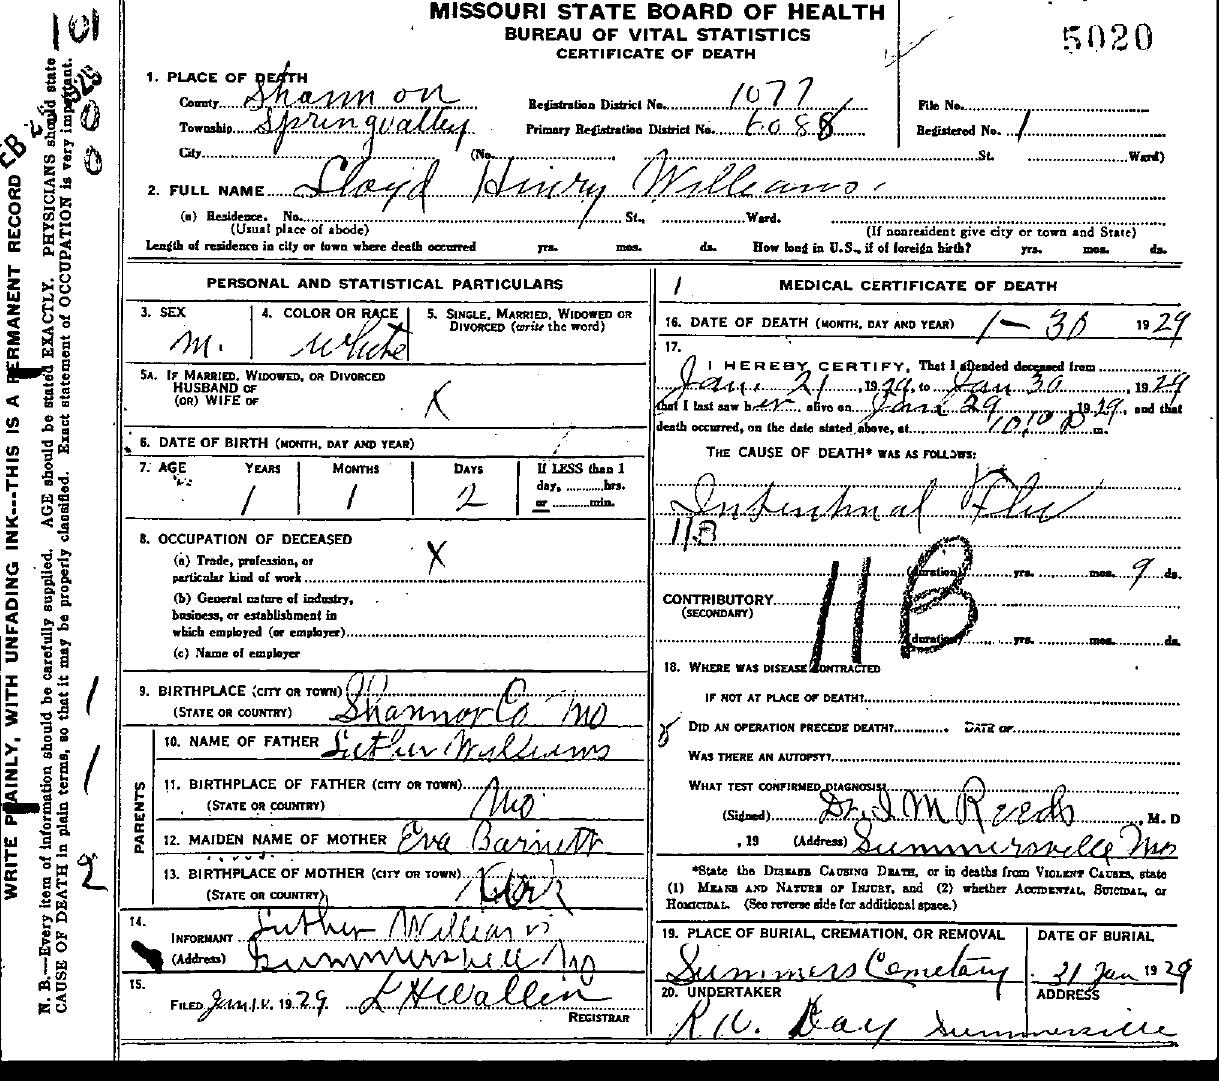 MISSOURI STATE BOARD OF HEALTH
BUREAU OF VITAL STATISTICS
CERTIFICATE OF DEATH
5020
1. PLACE OF DEATH
County Shannon Registration District No. 1077 File No.
Township Springvalley Primary Registration District No. 6088 Registered No. 1
City (No. St. Ward)
2. FULL NAME Lloyd Hinry Williams
(a) Residence. No. St., Ward.
(Usual place of abode) (If nonresident give city or town and State)
Length of residence in city or town where death occurred yrs. mos. ds. How long in U.S., if of foreign birth? yrs. mos. ds.
PERSONAL AND STATISTICAL PARTICULARS
3. SEX 4. COLOR OR RACE 5. SINGLE, MARRIED, WIDOWED OR
DIVORCED (write the word)
M. White
5A. IF MARRIED, WIDOWED, OR DIVORCED
HUSBAND OF
(OR) WIFE OF X
6. DATE OF BIRTH (MONTH, DAY AND YEAR)
7. AGE YEARS MONTHS DAYS If LESS than 1
day, hrs.
or min.
1 1 2
8. OCCUPATION OF DECEASED X
(a) Trade, profession, or
particular kind of work
(b) General nature of industry,
business, or establishment in
which employed (or employer)
(c) Name of employer
9. BIRTHPLACE (CITY OR TOWN)
(STATE OR COUNTRY) Shannon Co Mo
PARENTS
10. NAME OF FATHER Luther Williams
11. BIRTHPLACE OF FATHER (CITY OR TOWN)
(STATE OR COUNTRY) Mo
12. MAIDEN NAME OF MOTHER Eva Barnett
13. BIRTHPLACE OF MOTHER (CITY OR TOWN)
(STATE OR COUNTRY)
14.
INFORMANT Luther Williams
(Address) Summersville Mo
15.
FILED 1929 L H Wallin
REGISTRAR
1 MEDICAL CERTIFICATE OF DEATH
16. DATE OF DEATH (MONTH, DAY AND YEAR) 1-30 1929
17.
I HEREBY CERTIFY, That I attended deceased from
Jan. 21, 1929, to Jan 30, 1929
that I last saw h alive on Jan 29 1929, and that
death occurred, on the date stated above, at 10,10 P m.
THE CAUSE OF DEATH* WAS AS FOLLOWS:
Intestinal Flu
11B
11B
(duration) yrs. mos. 9 ds.
CONTRIBUTORY
(SECONDARY)
(duration) yrs. mos. ds.
18. WHERE WAS DISEASE CONTRACTED
IF NOT AT PLACE OF DEATH?
DID AN OPERATION PRECEDE DEATH? DATE OF
WAS THERE AN AUTOPSY?
WHAT TEST CONFIRMED DIAGNOSIS?
(Signed) Dr. I M Reeds, M. D
, 19 (Address) Summersville Mo
*State the DISEASE CAUSING DEATH, or in deaths from VIOLENT CAUSES, state
(1) MEANS AND NATURE OF INJURY, and (2) whether ACCIDENTAL, SUICIDAL, or
HOMICIDAL. (See reverse side for additional space.)
19. PLACE OF BURIAL, CREMATION, OR REMOVAL DATE OF BURIAL
Summers Cemetary 31 Jan 1929
20. UNDERTAKER ADDRESS
Day Summersville
WRITE PLAINLY, WITH UNFADING INK---THIS IS A PERMANENT RECORD
N. B.—Every item of information should be carefully supplied. AGE should be stated EXACTLY. PHYSICIANS should state
CAUSE OF DEATH in plain terms, so that it may be properly classified. Exact statement of OCCUPATION is very important.
101
0
0
1
1
2